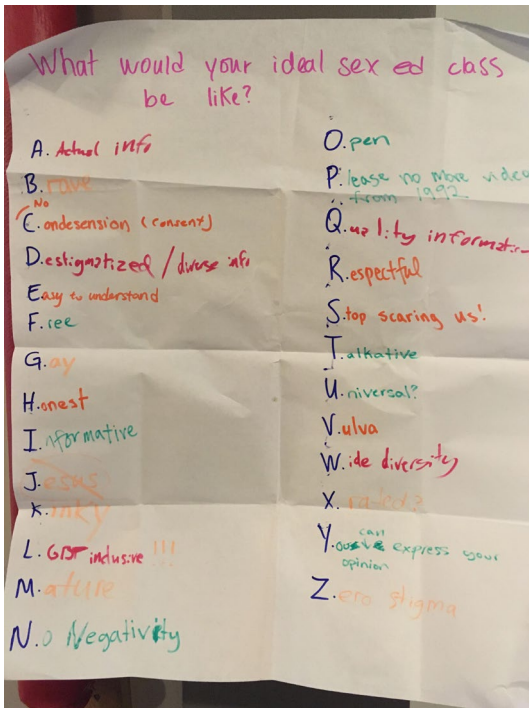 What would your ideal sex ed class
be like?
A. Actual info
B. rave
No
C. ondesension (consent)
D. estigmatized / diverse info
E. asy to understand
F. ree
G. ay
H. onest
I. nformative
J. esus
K. inky
L. GBT inclusive !!!
M. ature
N. o Negativity
O. pen
P. lease no more video
from 1992
Q. uality information
R. espectful
S. top scaring us!
T. alkative
U. niversal?
V. ulva
W. ide diversity
X. rated?
can
Y. ou express your
opinion
Z. ero stigma